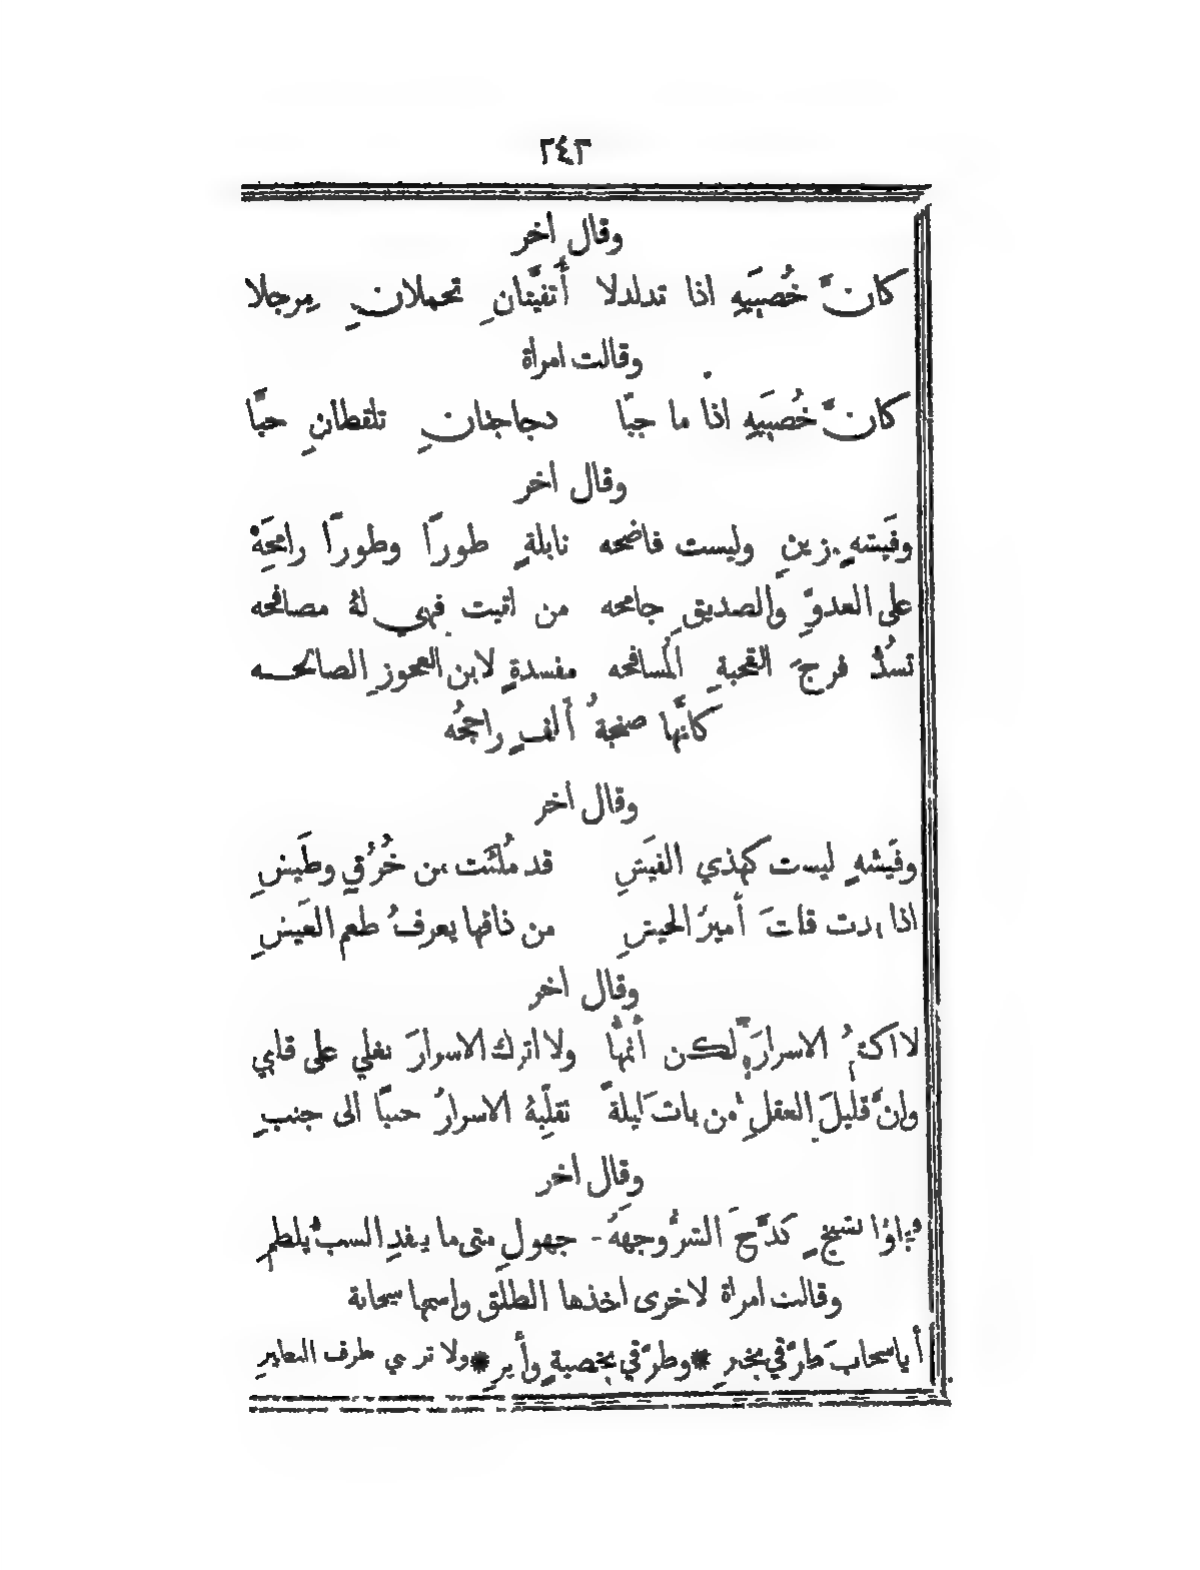 ٢٤٣
وقال آخر
كانَّ خُصيَيهِ اذا تدلدلا أُثفيَّتانِ تحملانِ مِرجلا
وقالت امرأة
كانَّ خُصيَيهِ اذا ما جبّا دجاجتانِ تلقطانِ حبّا
وقال آخر
وفَيشةٍ زينٍ وليست فاضحه نابلةٍ طورًا وطورًا رامحَهْ
على العدوِّ والصديقِ جامحه من اتيت فهي لهُ مصافحه
تسدُّ فرجَ القحبةِ المُسافحه مفسدةٍ لابن العجوزِ الصالحـه
كانَّها صنجةُ ألفٍ راجحُه
وقال آخر
وفَيشةٍ ليست كهذي الفَيشِ قد مُلئَت من خُرُقٍ وطَيشِ
اذا بدت قلتَ أميرُ الجيشِ من ذاقها يعرفُ طعم العَيشِ
وقال آخر
لا اكتمُ الاسرارَ لكن أُنمُّها ولا اترك الاسرارَ تغلي على قلبي
وانَّ قليلَ العقلِ من باتَ ليلةً تقلّبهُ الاسرارُ جنبًا الى جنبِ
وقال آخر
بشيخٍ كدَّحَ الشرُّ وجهَهُ جهولٍ متى ما ينفدِ السبُّ يلطمِ
وقالت امرأة لاخرى اخذها الطلق واسمها سحابة
أيا سحابَ طرّقي بخيرِ * وطرّقي بخصيةٍ وأيرِ * ولا تريني طرف البظيرِ